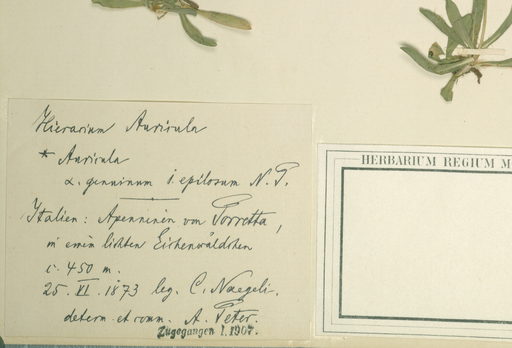 Hieracium Auricula
* Auricula
α. genuinum 1. epilosum N. P.
Italien: Apenninen von Porretta,
in einem lichten Eichenwäldchen
c. 450 m.
25. VI. 1873 leg. C. Naegeli.
determ. et comm. A. Peter.
Zugegangen 1. 1907.
HERBARIUM REGIUM M